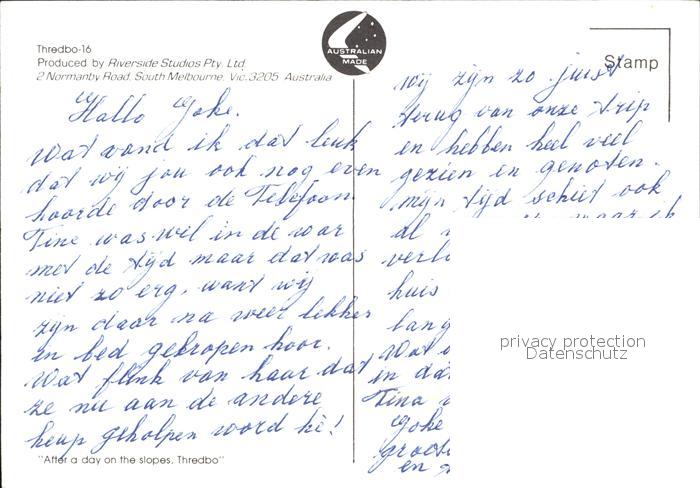 Thredbo-16
Produced by Riverside Studios Pty. Ltd.
2 Normanby Road, South Melbourne, Vic. 3205 Australia
AUSTRALIAN
MADE
Stamp
Hallo Joke.
Wat vond ik dat leuk
dat wij jou ook nog even
hoorde door de Telefoon.
Tine was wel in de war
met de tijd maar dat was
niet zo erg, want wij
zijn daar na weer lekker
in bed gekropen hoor.
Wat flink van haar dat
ze nu aan de andere
heup geholpen word hè!
"After a day on the slopes, Thredbo"
wij zijn zo juist
terug van onze trip
en hebben heel veel
gezien en genoten.
mijn tijd schiet ook
al
huis
lang
in
Tina
Joke
en
privacy protection
Datenschutz